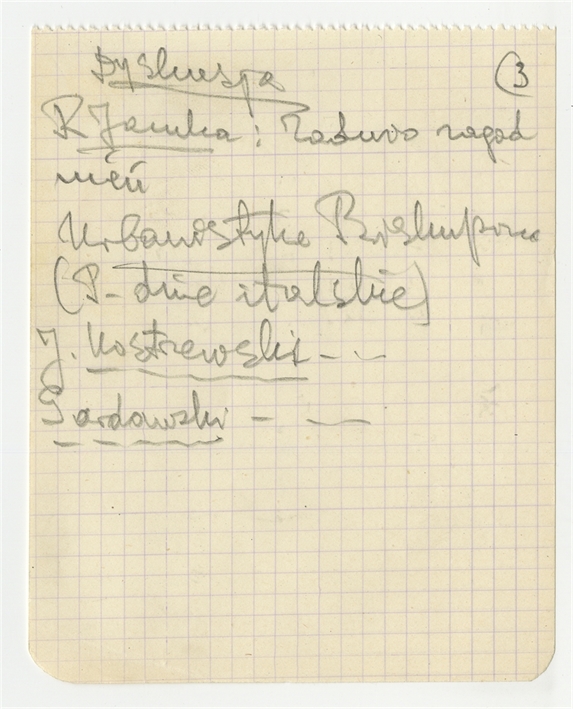 Dyskusja
3
R Jamka : zagad
nień
Urbanistyka Biskupina
(P- dnie italskie)
J. Kostrzewski - -
Gardawski - -